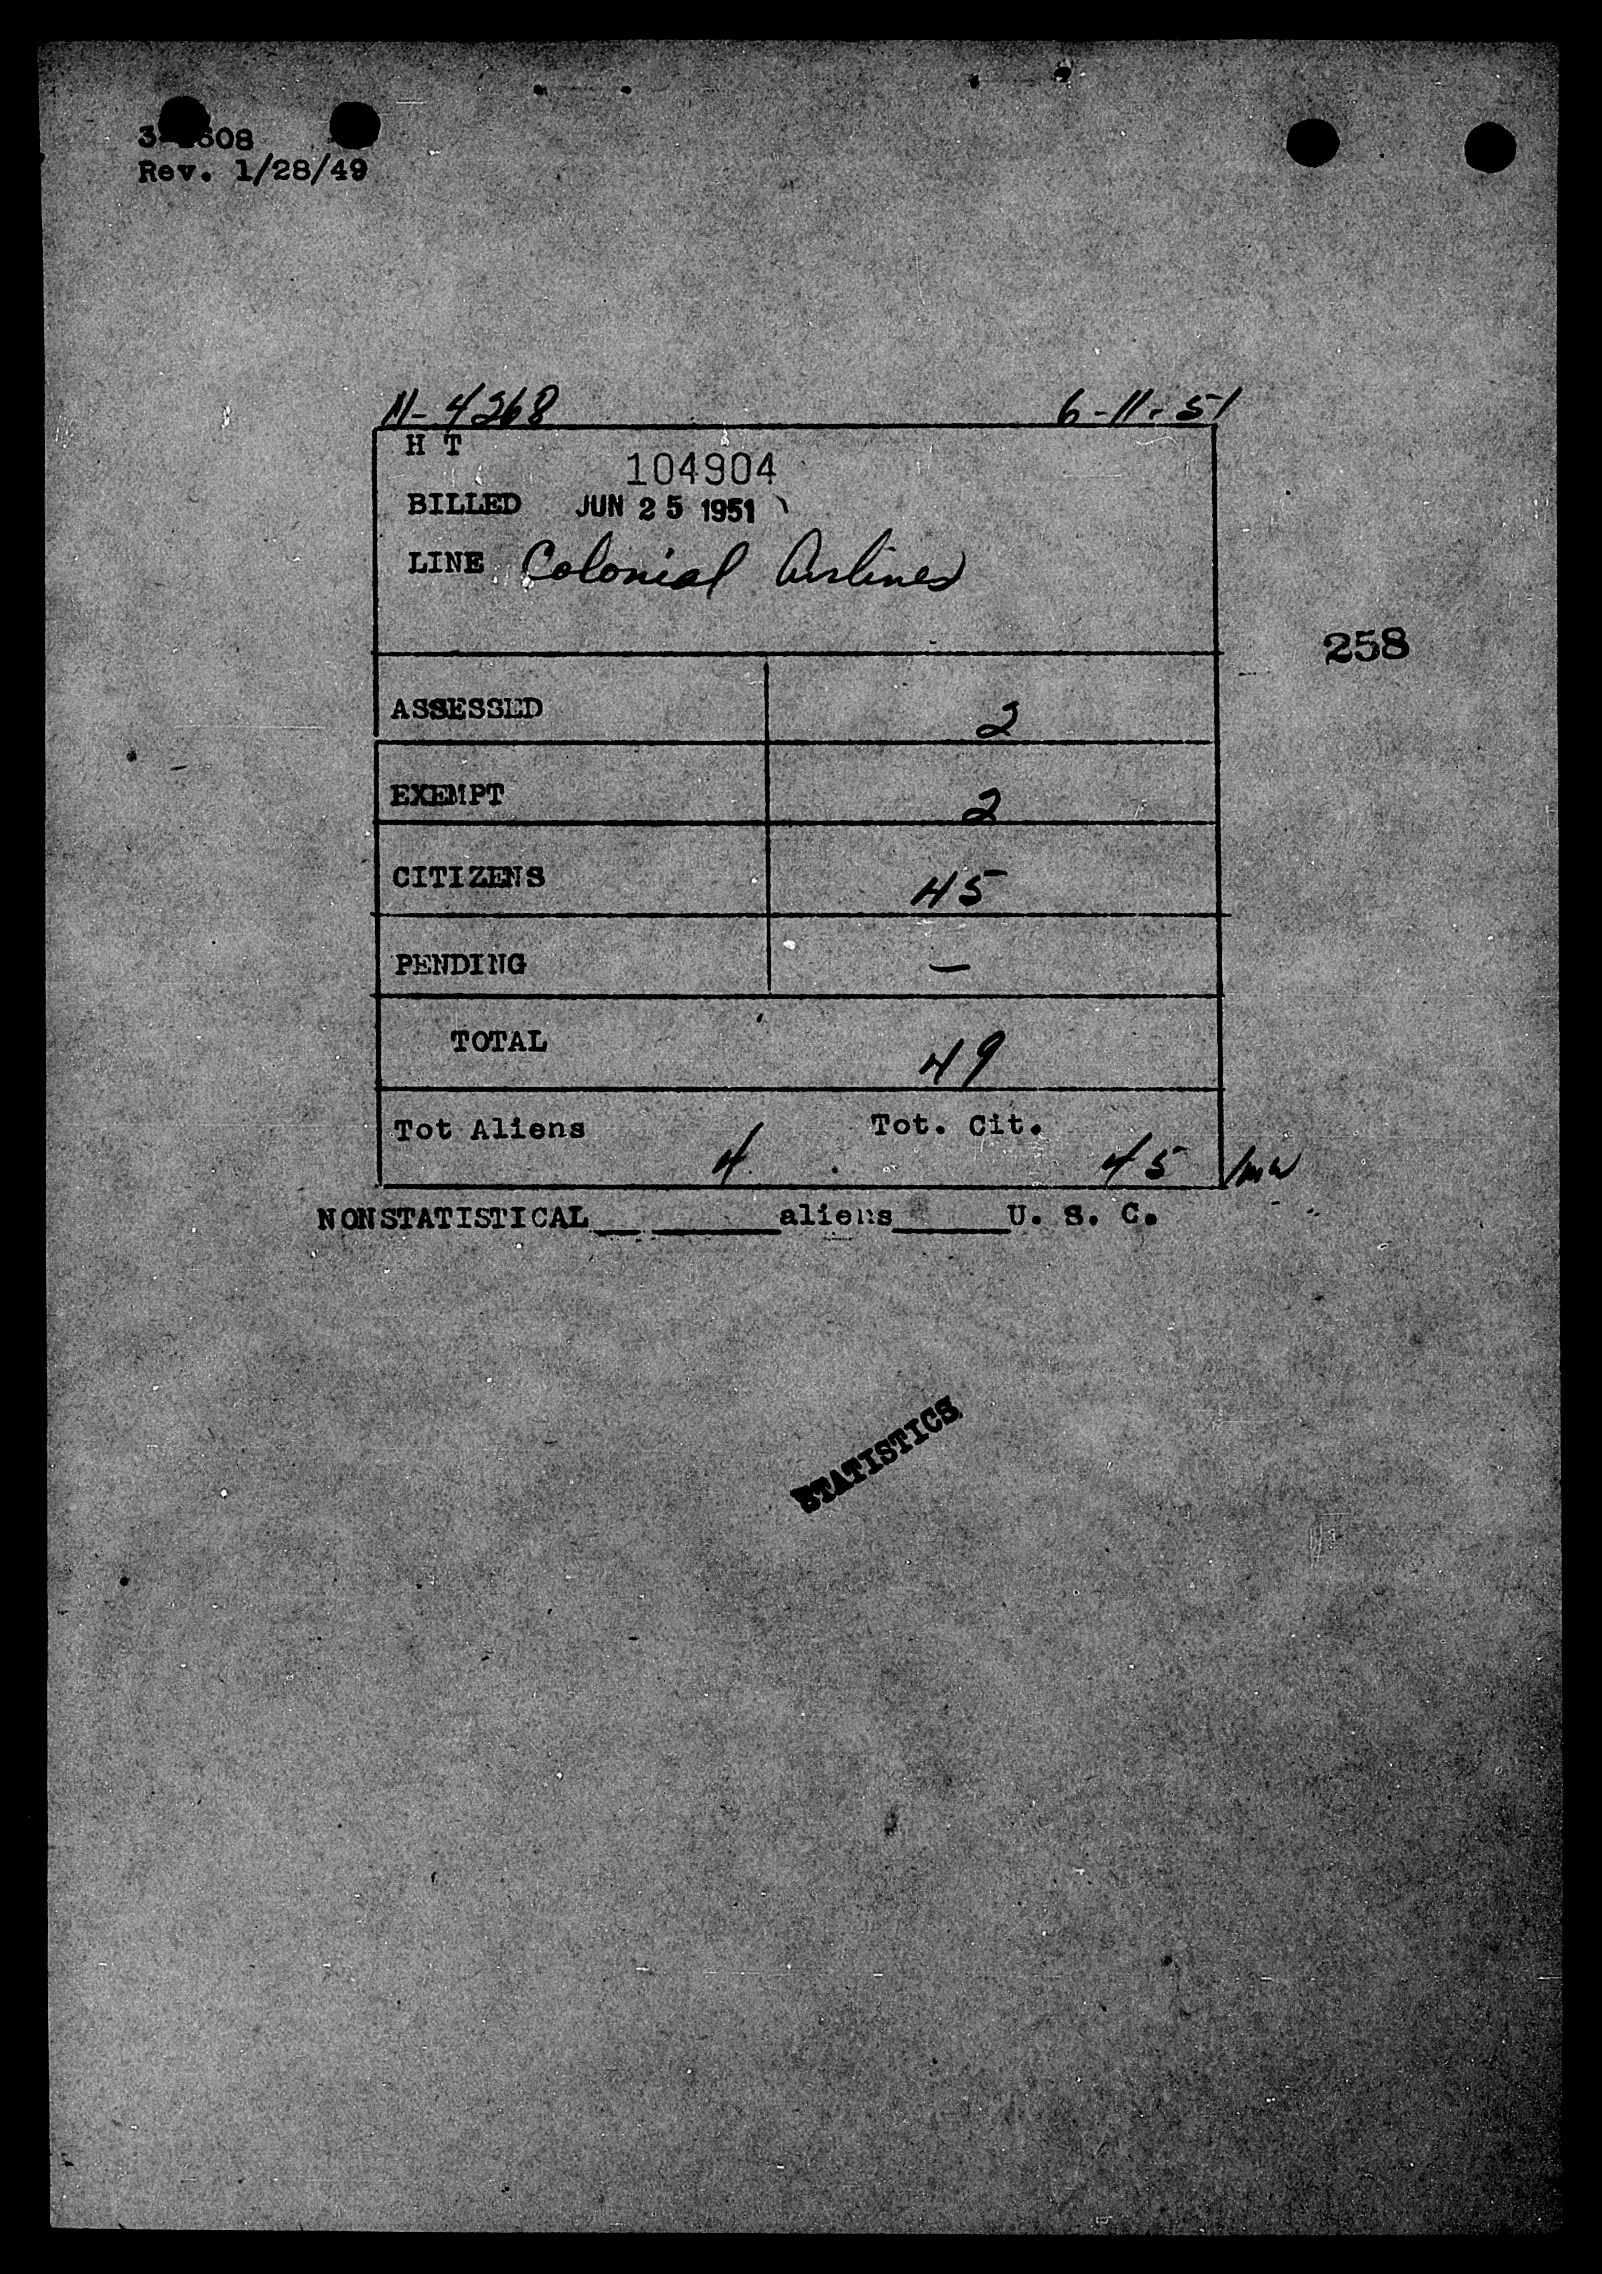 Rev. 1/28/49
N-4268 6-11-51
H T
104904
BILLED JUN 25 1951
LINE Colonial Airlines
258
ASSESSED 2
EXEMPT 2
CITIZENS 45
PENDING —
TOTAL 49
Tot Aliens 4 Tot. Cit. 45
NONSTATISTICAL__ ______aliens______U. S. C.
STATISTICS